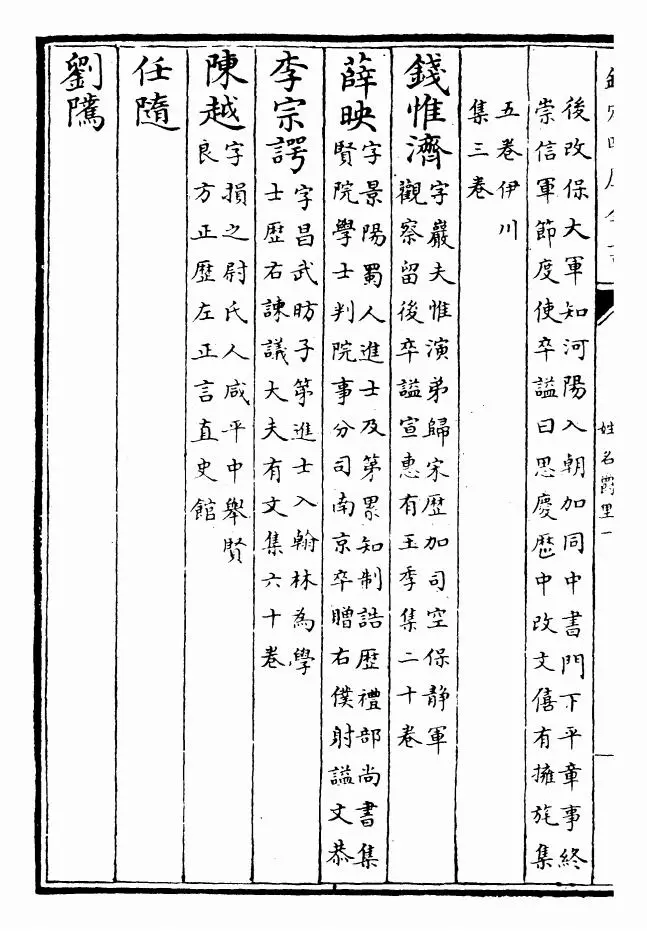 姓名爵里一
後改保大軍知河陽入朝加同中書門下平章事終
崇信軍節度使卒謚曰思慶歴中改文僖有擁旄集
五卷伊川
集三卷
錢惟濟字巖夫惟演弟歸宋歴加司空保静軍
觀察留後卒謚宣惠有玉季集二十卷
薛映字景陽蜀人進士及第累知制誥歴禮部尚書集
賢院學士判院事分司南京卒贈右僕射謚文恭
李宗諤字昌武昉子第進士入翰林為學
士歴右諫議大夫有文集六十卷
陳越字損之尉氏人咸平中舉賢
良方正歴左正言直史館
任隨
劉隲